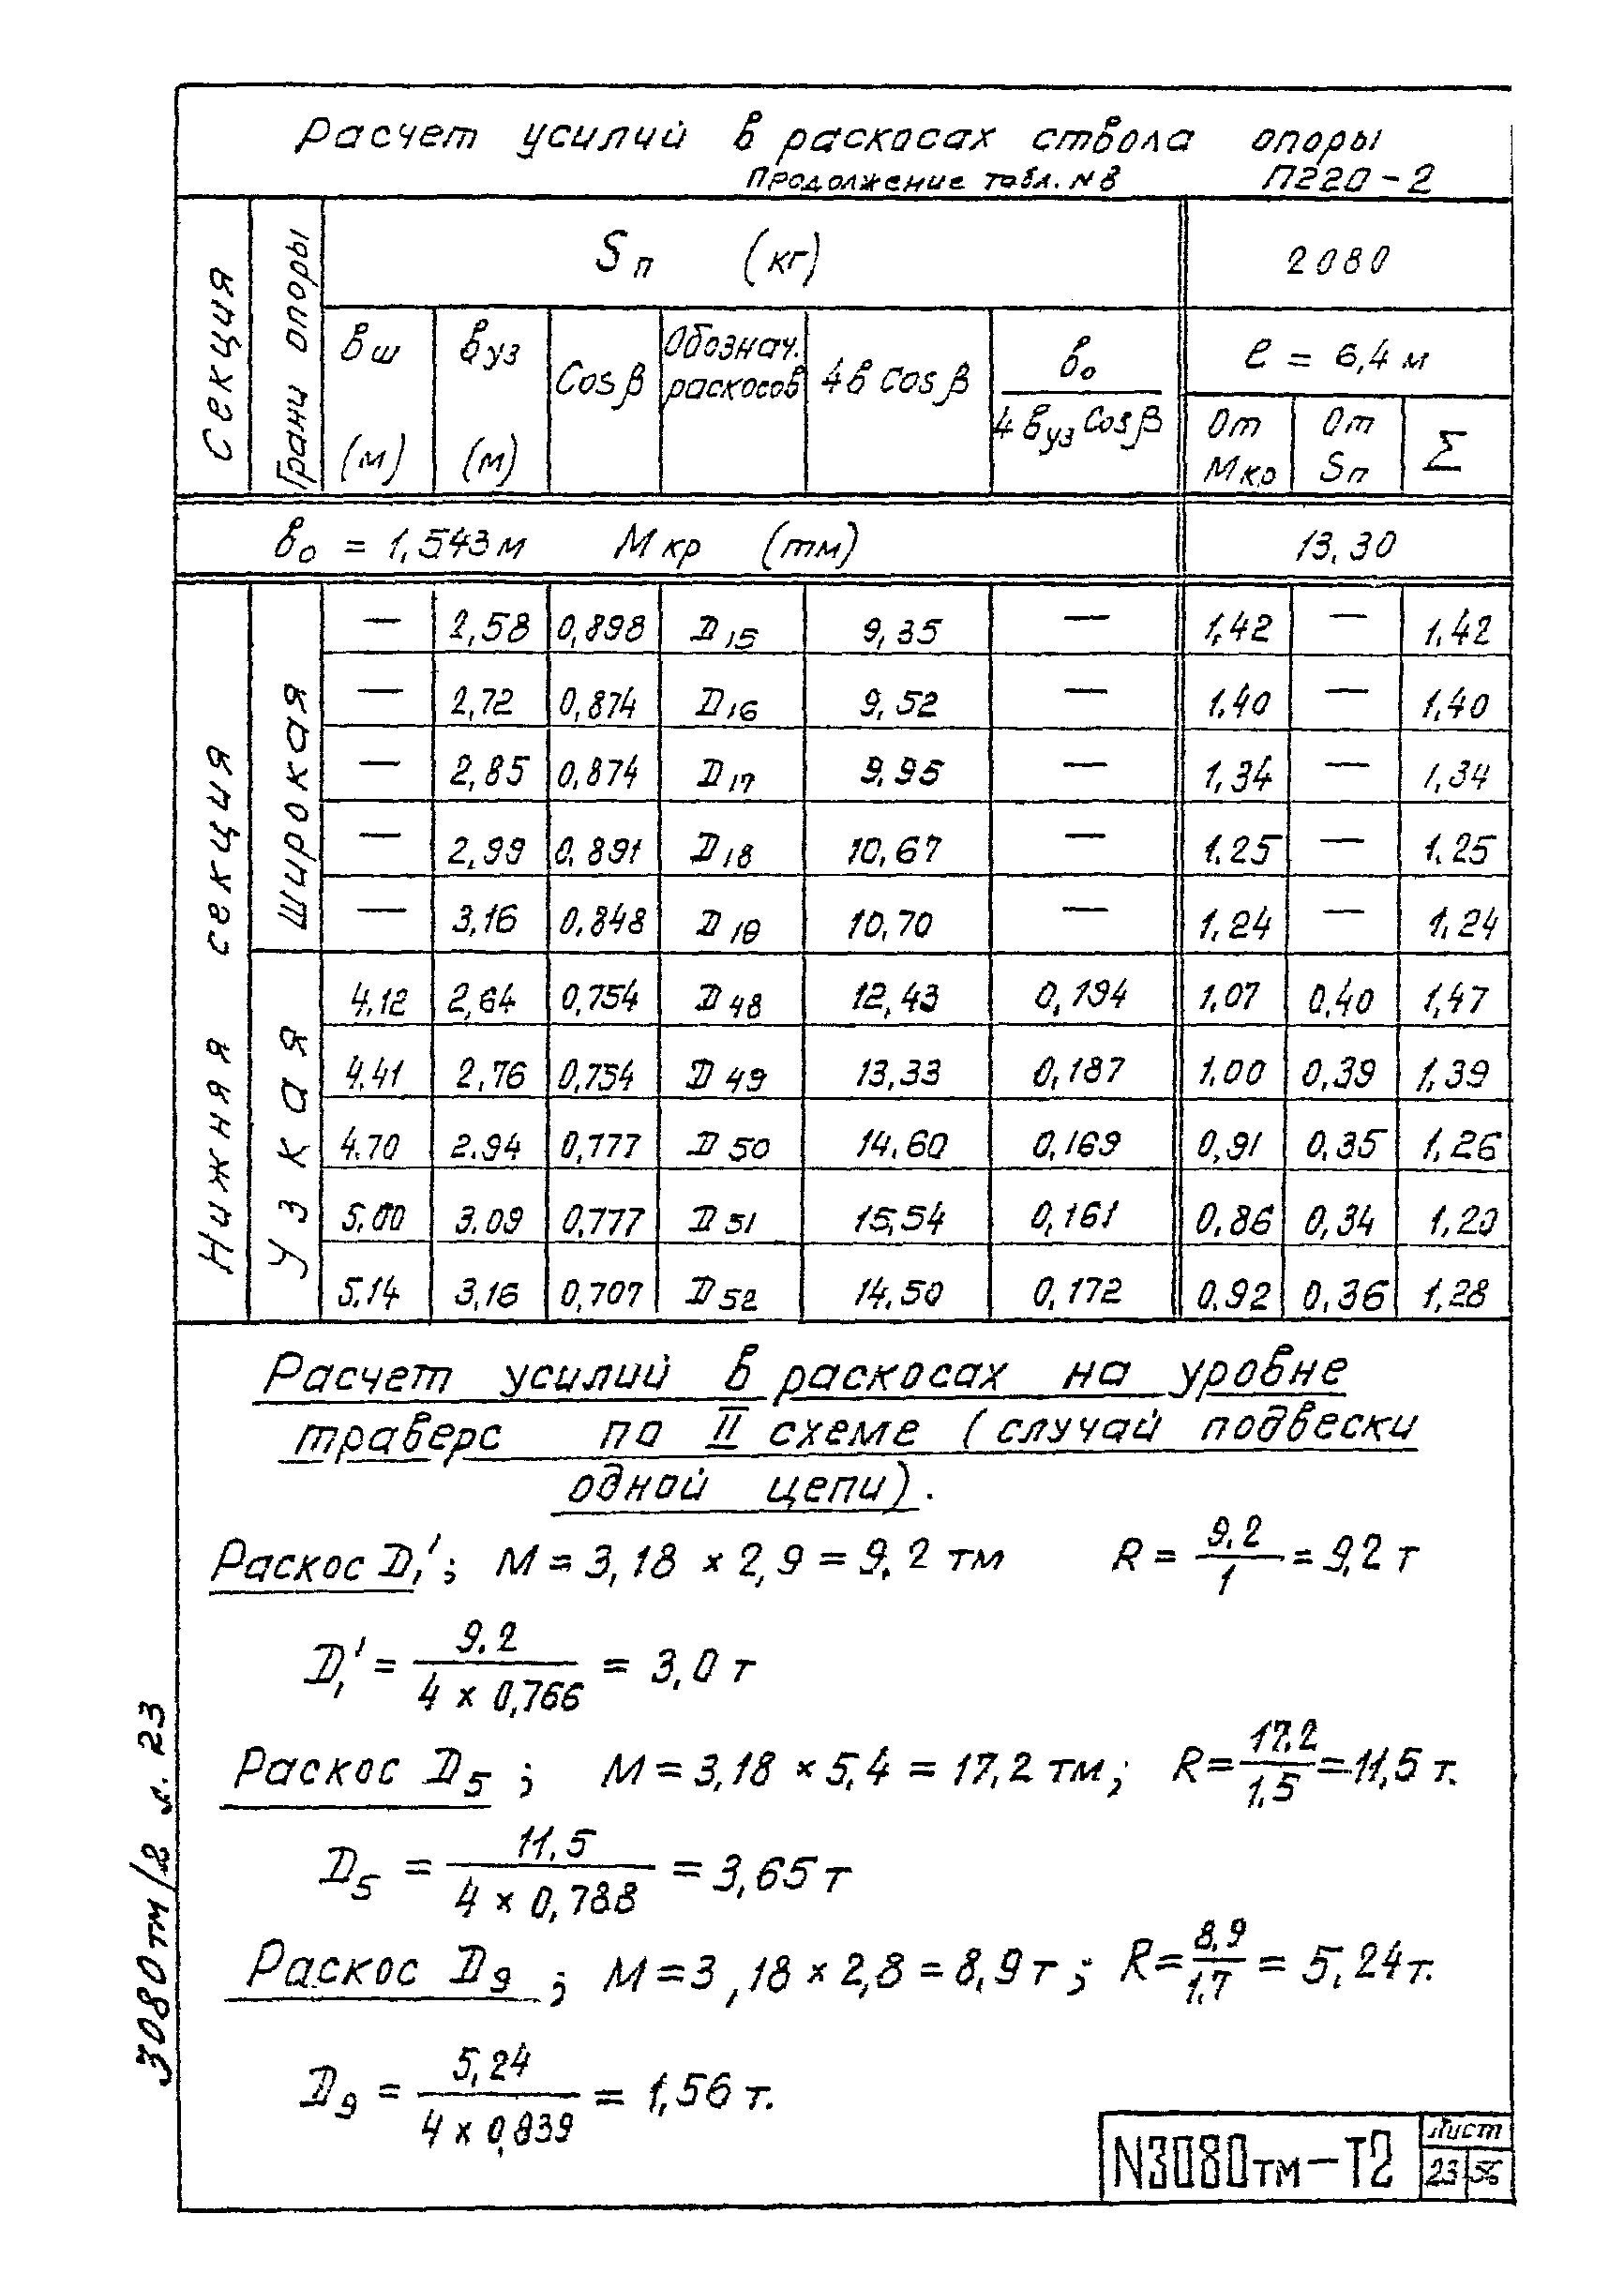 Расчет усилий в раскосах ствола опоры
Продолжение табл. №8 П220-2
Секция Грани опоры Sп (кг) 2080
вш (м) вуз (м) Cosβ Обознач. раскосов 4в Cosβ в₀ / 4вуз Cosβ ℓ = 6,4 м
От Мкр От Sп Σ
в₀ = 1,543 м Мкр (тм) 13,30
Нижняя секция
Широкая
— 2,58 0,898 D15 9,35 — 1,42 — 1,42
— 2,72 0,874 D16 9,52 — 1,40 — 1,40
— 2,85 0,874 D17 9,95 — 1,34 — 1,34
— 2,99 0,891 D18 10,67 — 1.25 — 1.25
— 3,16 0,848 D19 10,70 — 1,24 — 1,24
Узкая
4.12 2,64 0,754 D48 12,43 0,194 1,07 0,40 1,47
4.41 2,76 0,754 D49 13,33 0,187 1.00 0,39 1,39
4.70 2.94 0,777 D50 14,60 0,169 0,91 0,35 1,26
5,00 3.09 0,777 D51 15,54 0,161 0,86 0,34 1,20
5.14 3,16 0,707 D52 14,50 0,172 0.92 0,36 1,28
Расчет усилий в раскосах на уровне
траверс по II схеме (случай подвески
одной цепи).
Раскос D₁'; М = 3,18 × 2,9 = 9.2 тм R = 9,2 / 1 = 9,2 т
D₁' = 9.2 / 4 × 0,766 = 3,0 т
Раскос D5; М = 3,18 × 5,4 = 17,2 тм; R = 17.2 / 1.5 = 11,5 т.
D5 = 11.5 / 4 × 0,788 = 3,65 т
Раскос D9; М = 3,18 × 2,8 = 8,9 т; R = 8,9 / 1.7 = 5,24 т.
D9 = 5,24 / 4 × 0,839 = 1,56 т.
3080тм/2 л. 23
N3080тм-Т2 Лист
23 56